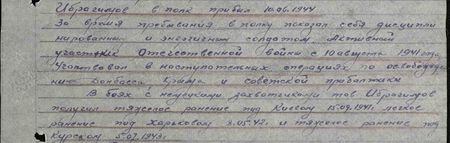 Ибрагимов в полк прибыл 10.06.1944
За время пребывания в полку показал себя дисципли
нированным и энергичным солдатом. Активный
участник Отечественной войны с 10 августа 1941 года
Участвовал в наступательных операциях по освобожде
нию Донбасса, Крыма и советской прибалтики
В боях с немецкими захватчиками тов Ибрагимов
получил тяжелое ранение под Киевом 15.09.1941, легкое
ранение под Харьковом 3.05.42 и тяжелое ранение под
Курском 5.07.1943г.